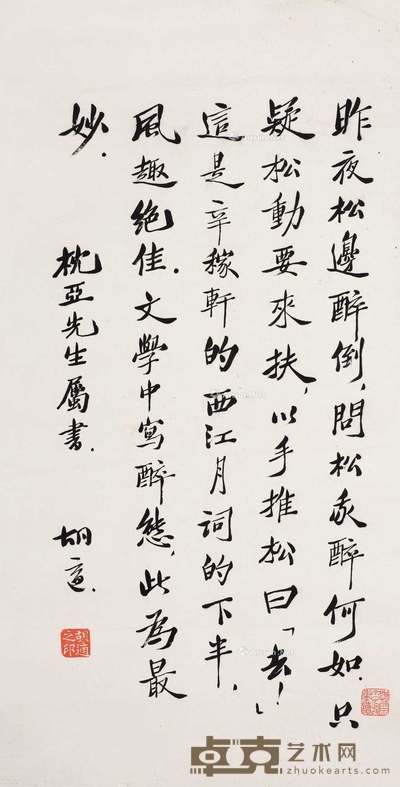 昨夜松邊醉倒，問松我醉何如．只
疑松動要來扶，以手推松曰「去！」
這是辛稼軒的西江月詞的下半，
風趣絕佳．文學中寫醉態，此為最
妙．
枕亞先生屬書．
胡適．
胡適之印
卓克艺术网
www.zhuokearts.com